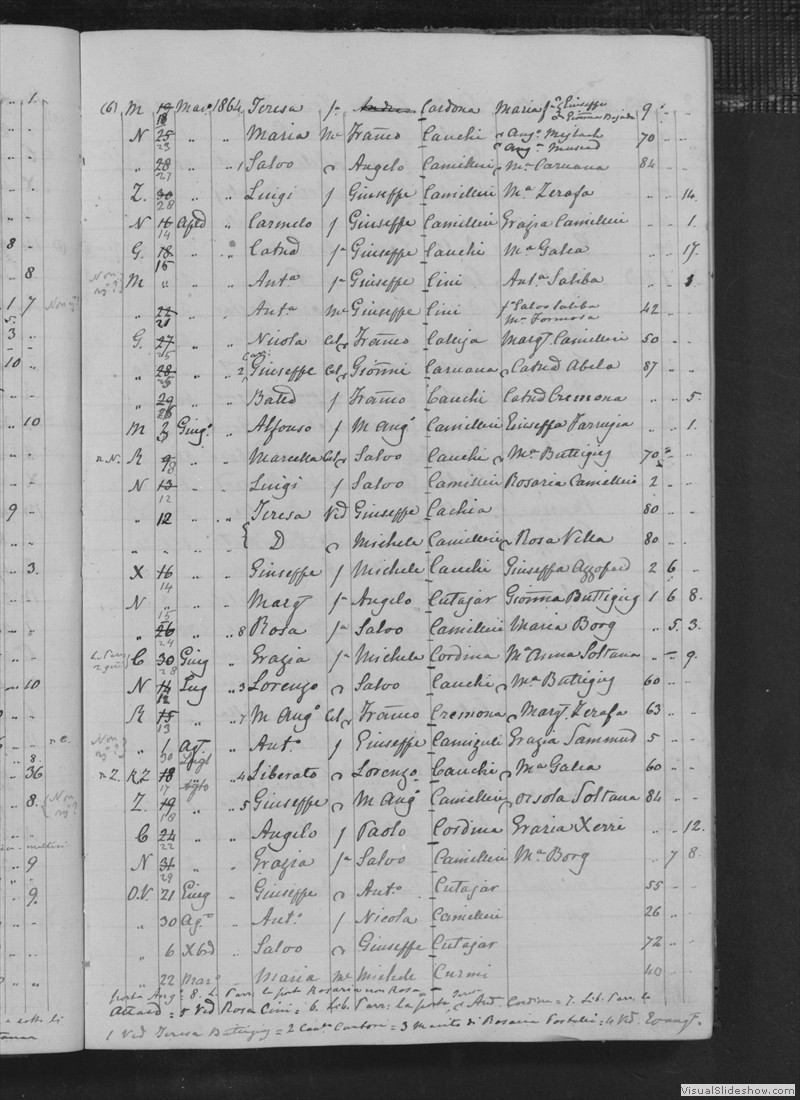 (6) M 19 18 Mar° 1864 Teresa fa Andrea Cardona Maria f Giuseppe 9 „ „
N 25 23 „ „ Maria Me Franco Cauchi Ang° 70 „ „
„ 28 27 „ „ 1 Salvo Angelo Camilleri Ma Caruana 84
Z. 30 28 „ „ Luigi f Giuseppe Camilleri Ma Zerafa „ „ 14.
N 16 14 „ Carmelo f Giuseppe Camilleri Grazia Camilleri „ „ 1.
G. 18 15 „ „ Catnd fa Giuseppe Cauchi Ma Galea „ „ 17.
M „ „ „ Anta fa Giuseppe Cini Anta Saliba „ „
„ 22 21 „ „ Anta Me Giuseppe Cini Salvo Saliba Ma Formosa 42 „ „
G. 27 25 „ „ Nicola Cel Franco Calleja Margt Camilleri 50 „ „
„ 28 25 „ „ 2 Giuseppe Cel Gionni Caruana Catnd Abela 87 „ „
„ 29 „ „ Bated f Franco Cauchi Catnd Cremona „ „ 5.
M Giug° „ Alfonso f M Ang° Camilleri Giuseppa Farrugia „ „ 1.
R 9 8 „ „ Marcella Cel Salvo Cauchi Ma Buttigieg 70 „
N 13 12 „ „ Luigi f Salvo Camilleri Rosaria Camilleri 2 „ „
„ 12 „ „ Teresa Vid Giuseppe Cachia 80 „ „
„ „ „ „ D Michele Camilleri Rosa Vella 80 „ „
X 16 14 „ „ Giuseppe f Michele Cauchi Giuseppa Azzopard 2 6 „
N 15 „ „ Margt fa Angelo Cutajar Gionna Buttigieg 1 6 8.
„ 26 24 „ „ 8 Rosa fa Salvo Camilleri Maria Borg „ 5. 3.
C 30 28 Giug „ Grazia fa Michele Cordina Ma Anna Soltana „ „ 9.
N 14 12 Lug „ 3 Lorenzo Salvo Cauchi Ma Buttigieg 60 „ „
R 15 13 „ „ 7 M Ang° Cel Franco Cremona Margt Zerafa 63 „ „
„ 1 30 Ag° „ Ant° f Giuseppe Camizuli Grazia Sammud 5 „ „
RZ 18 17 „ 4 Liberato Lorenzo Cauchi Ma Galea 60 „ „
Z. 19 18 „ „ 5 Giuseppe M Ang° Camilleri Orsola Soltana 84 „ „
C 24 22 „ „ Angelo f Paolo Cordina Grazia Xerri „ „ 12.
N 31 29 „ „ Grazia fa Salvo Camilleri Ma Borg „ 7 8.
O.V. 21 Giug „ Giuseppe Ant° Cutajar 55 „ „
„ 30 Ag° „ Ant° f Nicola Camilleri 26 „ „
„ 6 Xbd „ Salvo Giuseppe Cutajar 72 „ „
„ 22 Mar° „ Maria Me Michele Curmi 40 „ „
porta Ang° = 8. L. Parr. la porta Rosaria non Rosa
Attard = 5 Vid Rosa Cini = 6. Lib. Parr: la porta Ant. Cordina = 7. Lib. Parr. la
1 Vid Teresa Buttigieg = 2 Cantore = 3 Marito di Rosaria Portelli = 4 Vid.
VisualSlideshow.com